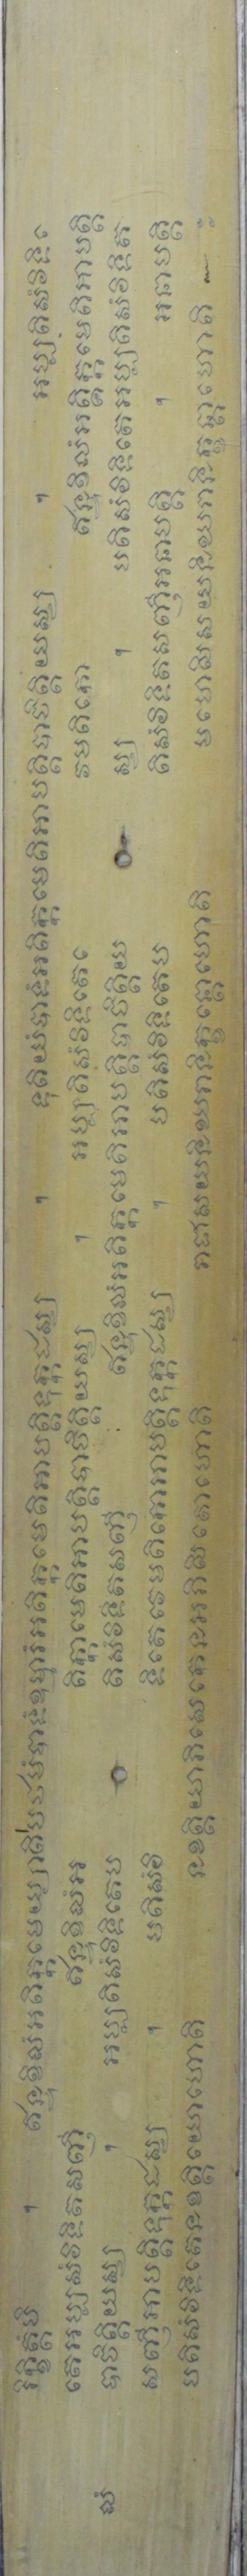 រិក្ខិត្តំបិ ។ ឥន្ទខិលំអតិក្កមេយ្យាតិបឋមំបាទំឧម្មារំអតិក្កមេតិអាបត្តិទុក្កដស្ស ។ ទុតិយំបាទំអតិក្កមេតិអាបត្តិបាចិត្តិយស្ស ។ អប្បតិសំវិទិ
តេអប្បសំវិទិតសញ្ញី ឥន្ទខិលំអ តិក្កាមេតិអាបត្តិបាចិត្តិយស្ស ។ អប្បតិសំវិទិតេ វេមតិកោ ឥន្ទខិលំអតិក្កមេតិអាបត្តិ
លំ បាចិត្តិយស្ស ។ អប្បតិសំវិទិតេប តិសំវិទិតសញ្ញី ឥន្ទខិលំអតិក្កមេតិអាបត្តិបាចិត្តិយ ស្ស ។ បតិសំវិទិតេអប្បតិសំវិទិត
សញ្ញីអាបត្តិទុក្កដស្ស ។ បតិសំវិ ទិតេវេមតិកោអាបត្តិទុក្កដស្ស ។ បតិសំវិទិតេប តិសំវិទិតសញ្ញីអនាបត្តិ ។ អនាបត្តិ
បតិសំវិទិតេនខត្តិយោហោតិ នខត្តិយាភិសេកេនអភិសិតោហោតិ រាជាសយនិឃរានិក្ខន្តោហោតិ មហេសិសយនិឃរានិក្ខន្តាហោតិ